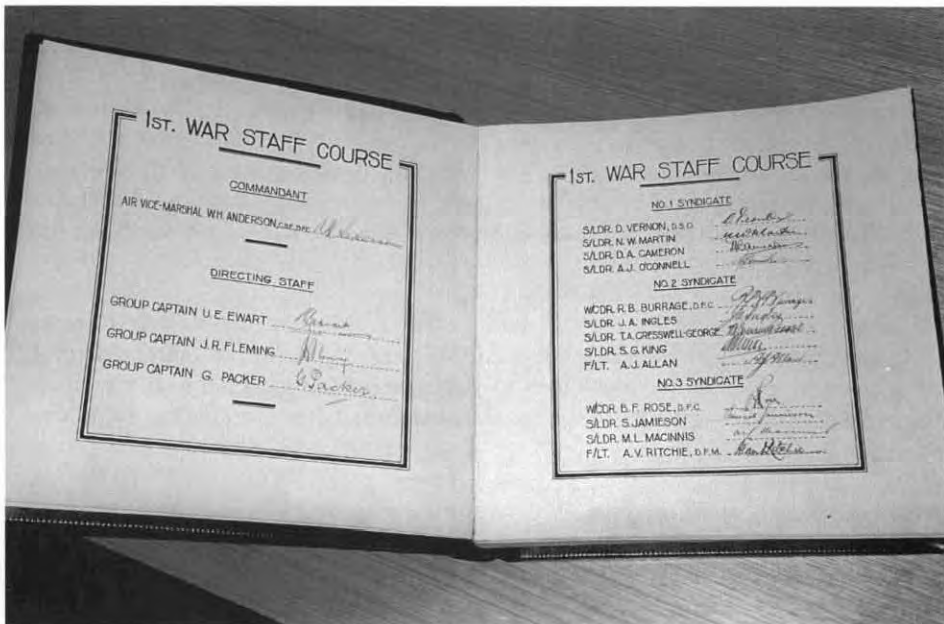 1ST. WAR STAFF COURSE
COMMANDANT
AIR VICE-MARSHAL W.H. ANDERSON, C.B.E. D.F.C.
DIRECTING STAFF
GROUP CAPTAIN U.E. EWART
GROUP CAPTAIN J.R. FLEMING
GROUP CAPTAIN G. PACKER G Packer
1ST. WAR STAFF COURSE
NO. 1 SYNDICATE
S/LDR. D. VERNON, D.S.O.
S/LDR. N.W. MARTIN
S/LDR. D.A. CAMERON
S/LDR. A.J. O'CONNELL
NO. 2 SYNDICATE
W/CDR. R.B. BURRAGE, D.F.C.
S/LDR. J.A. INGLES
S/LDR. T.A. CRESSWELL-GEORGE
S/LDR. S.G. KING
F/LT. A.J. ALLAN
NO. 3 SYNDICATE
W/CDR. B.F. ROSE, D.F.C.
S/LDR. S. JAMIESON
S/LDR. M.L. MACINNIS
F/LT. A.V. RITCHIE, D.F.M.